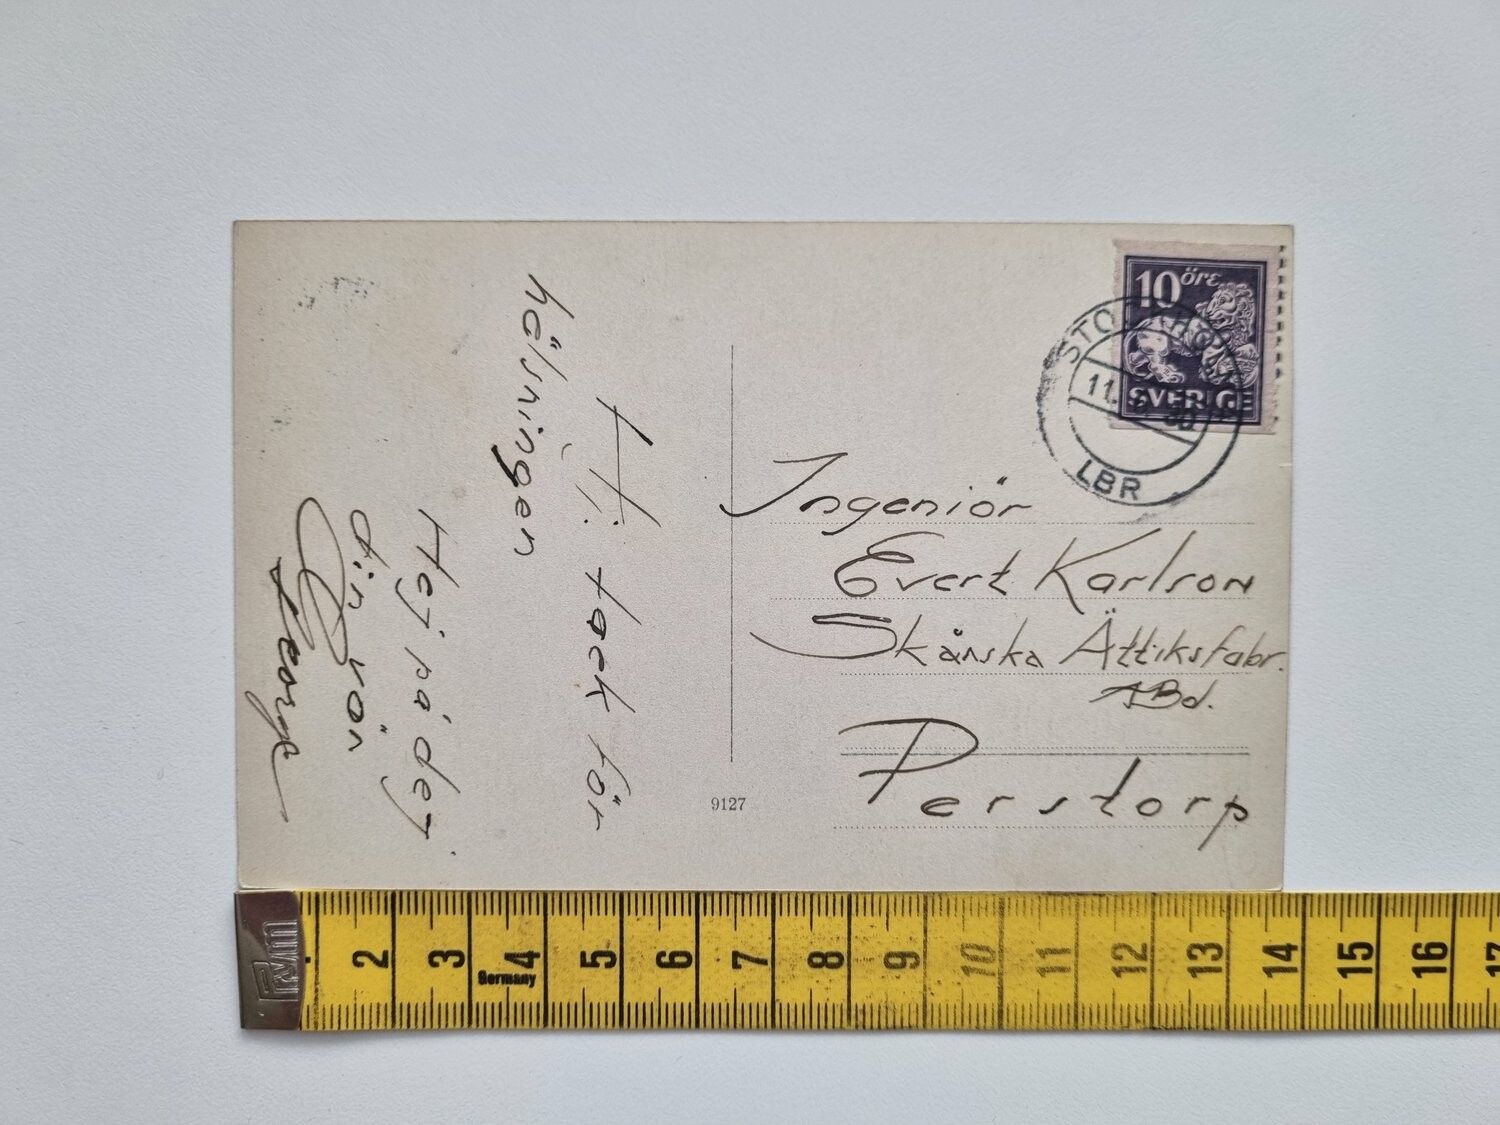 Hj. tack för
hälsningen
Hej på dej
din vän
George
10 öre
SVERIGE
STOCKHOLM
11. 30
LBR
Ingeniör
Evert Karlson
Skånska Ättiksfabr.
ABol.
Perstorp
9127
Prym
2 3 4 5 6 7 8 9 10 11 12 13 14 15 16 17
Germany